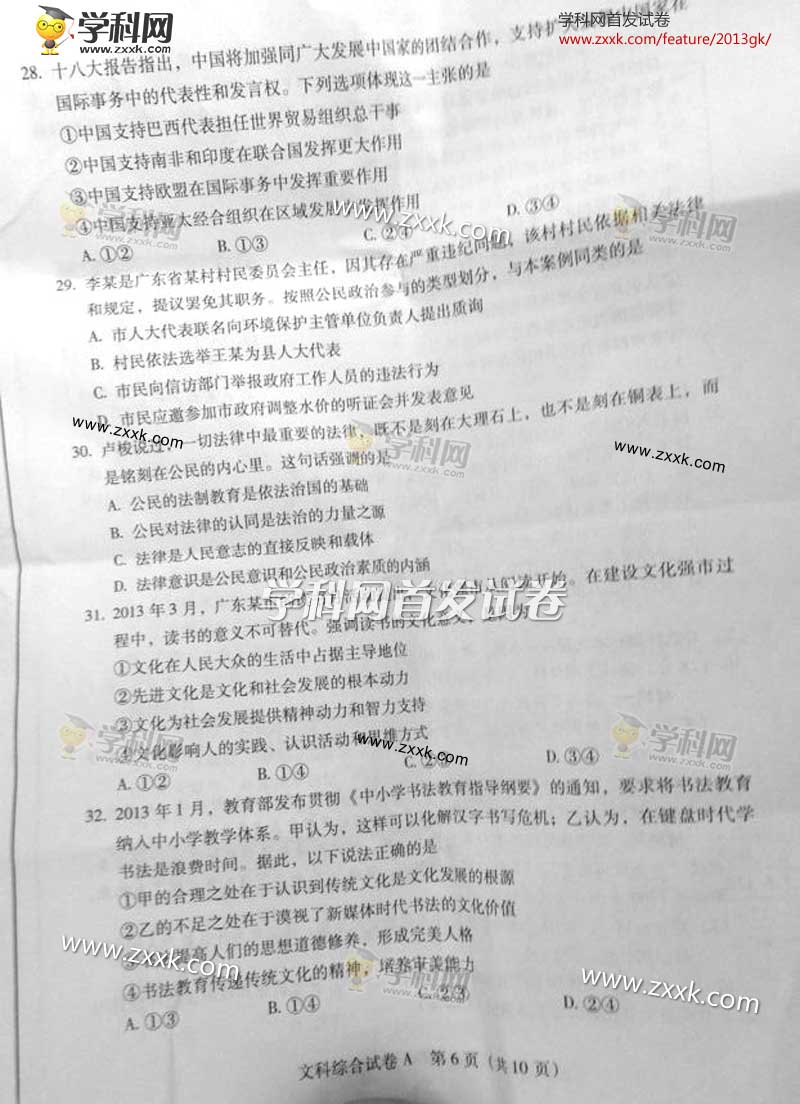 学科网
www.zxxk.com
学科网首发试卷
www.zxxk.com/feature/2013gk/
28. 十八大报告指出，中国将加强同广大发展中国家的团结合作，支持扩大
国际事务中的代表性和发言权。下列选项体现这一主张的是
①中国支持巴西代表担任世界贸易组织总干事
②中国支持南非和印度在联合国发挥更大作用
③中国支持欧盟在国际事务中发挥重要作用
④中国支持亚太经合组织在区域发展中发挥作用
A. ①② B. ①③ C. ②④ D. ③④
29. 李某是广东省某村村民委员会主任，因其存在严重违纪问题，该村村民依据相关法律
和规定，提议罢免其职务。按照公民政治参与的类型划分，与本案例同类的是
A. 市人大代表联名向环境保护主管单位负责人提出质询
B. 村民依法选举王某为县人大代表
C. 市民向信访部门举报政府工作人员的违法行为
D. 市民应邀参加市政府调整水价的听证会并发表意见
30. 卢梭说过，一切法律中最重要的法律，既不是刻在大理石上，也不是刻在铜表上，而
是铭刻在公民的内心里。这句话强调的是
A. 公民的法制教育是依法治国的基础
B. 公民对法律的认同是法治的力量之源
C. 法律是人民意志的直接反映和载体
D. 法律意识是公民意识和公民政治素质的内涵
31. 2013 年 3 月，广东某市 开始。在建设文化强市过
程中，读书的意义不可替代。强调读书的文化意义
①文化在人民大众的生活中占据主导地位
②先进文化是文化和社会发展的根本动力
③文化为社会发展提供精神动力和智力支持
④文化影响人的实践、认识活动和思维方式
A. ①② B. ①③ C. ②③ D. ③④
32. 2013 年 1 月，教育部发布贯彻《中小学书法教育指导纲要》的通知，要求将书法教育
纳入中小学教学体系。甲认为，这样可以化解汉字书写危机；乙认为，在键盘时代学
书法是浪费时间。据此，以下说法正确的是
①甲的合理之处在于认识到传统文化是文化发展的根源
②乙的不足之处在于漠视了新媒体时代书法的文化价值
③ 提高人们的思想道德修养，形成完美人格
④书法教育传递传统文化的精神，培养审美能力
A. ①③ B. ①④ C. ②③ D. ②④
文科综合试卷 A 第 6 页（共 10 页）